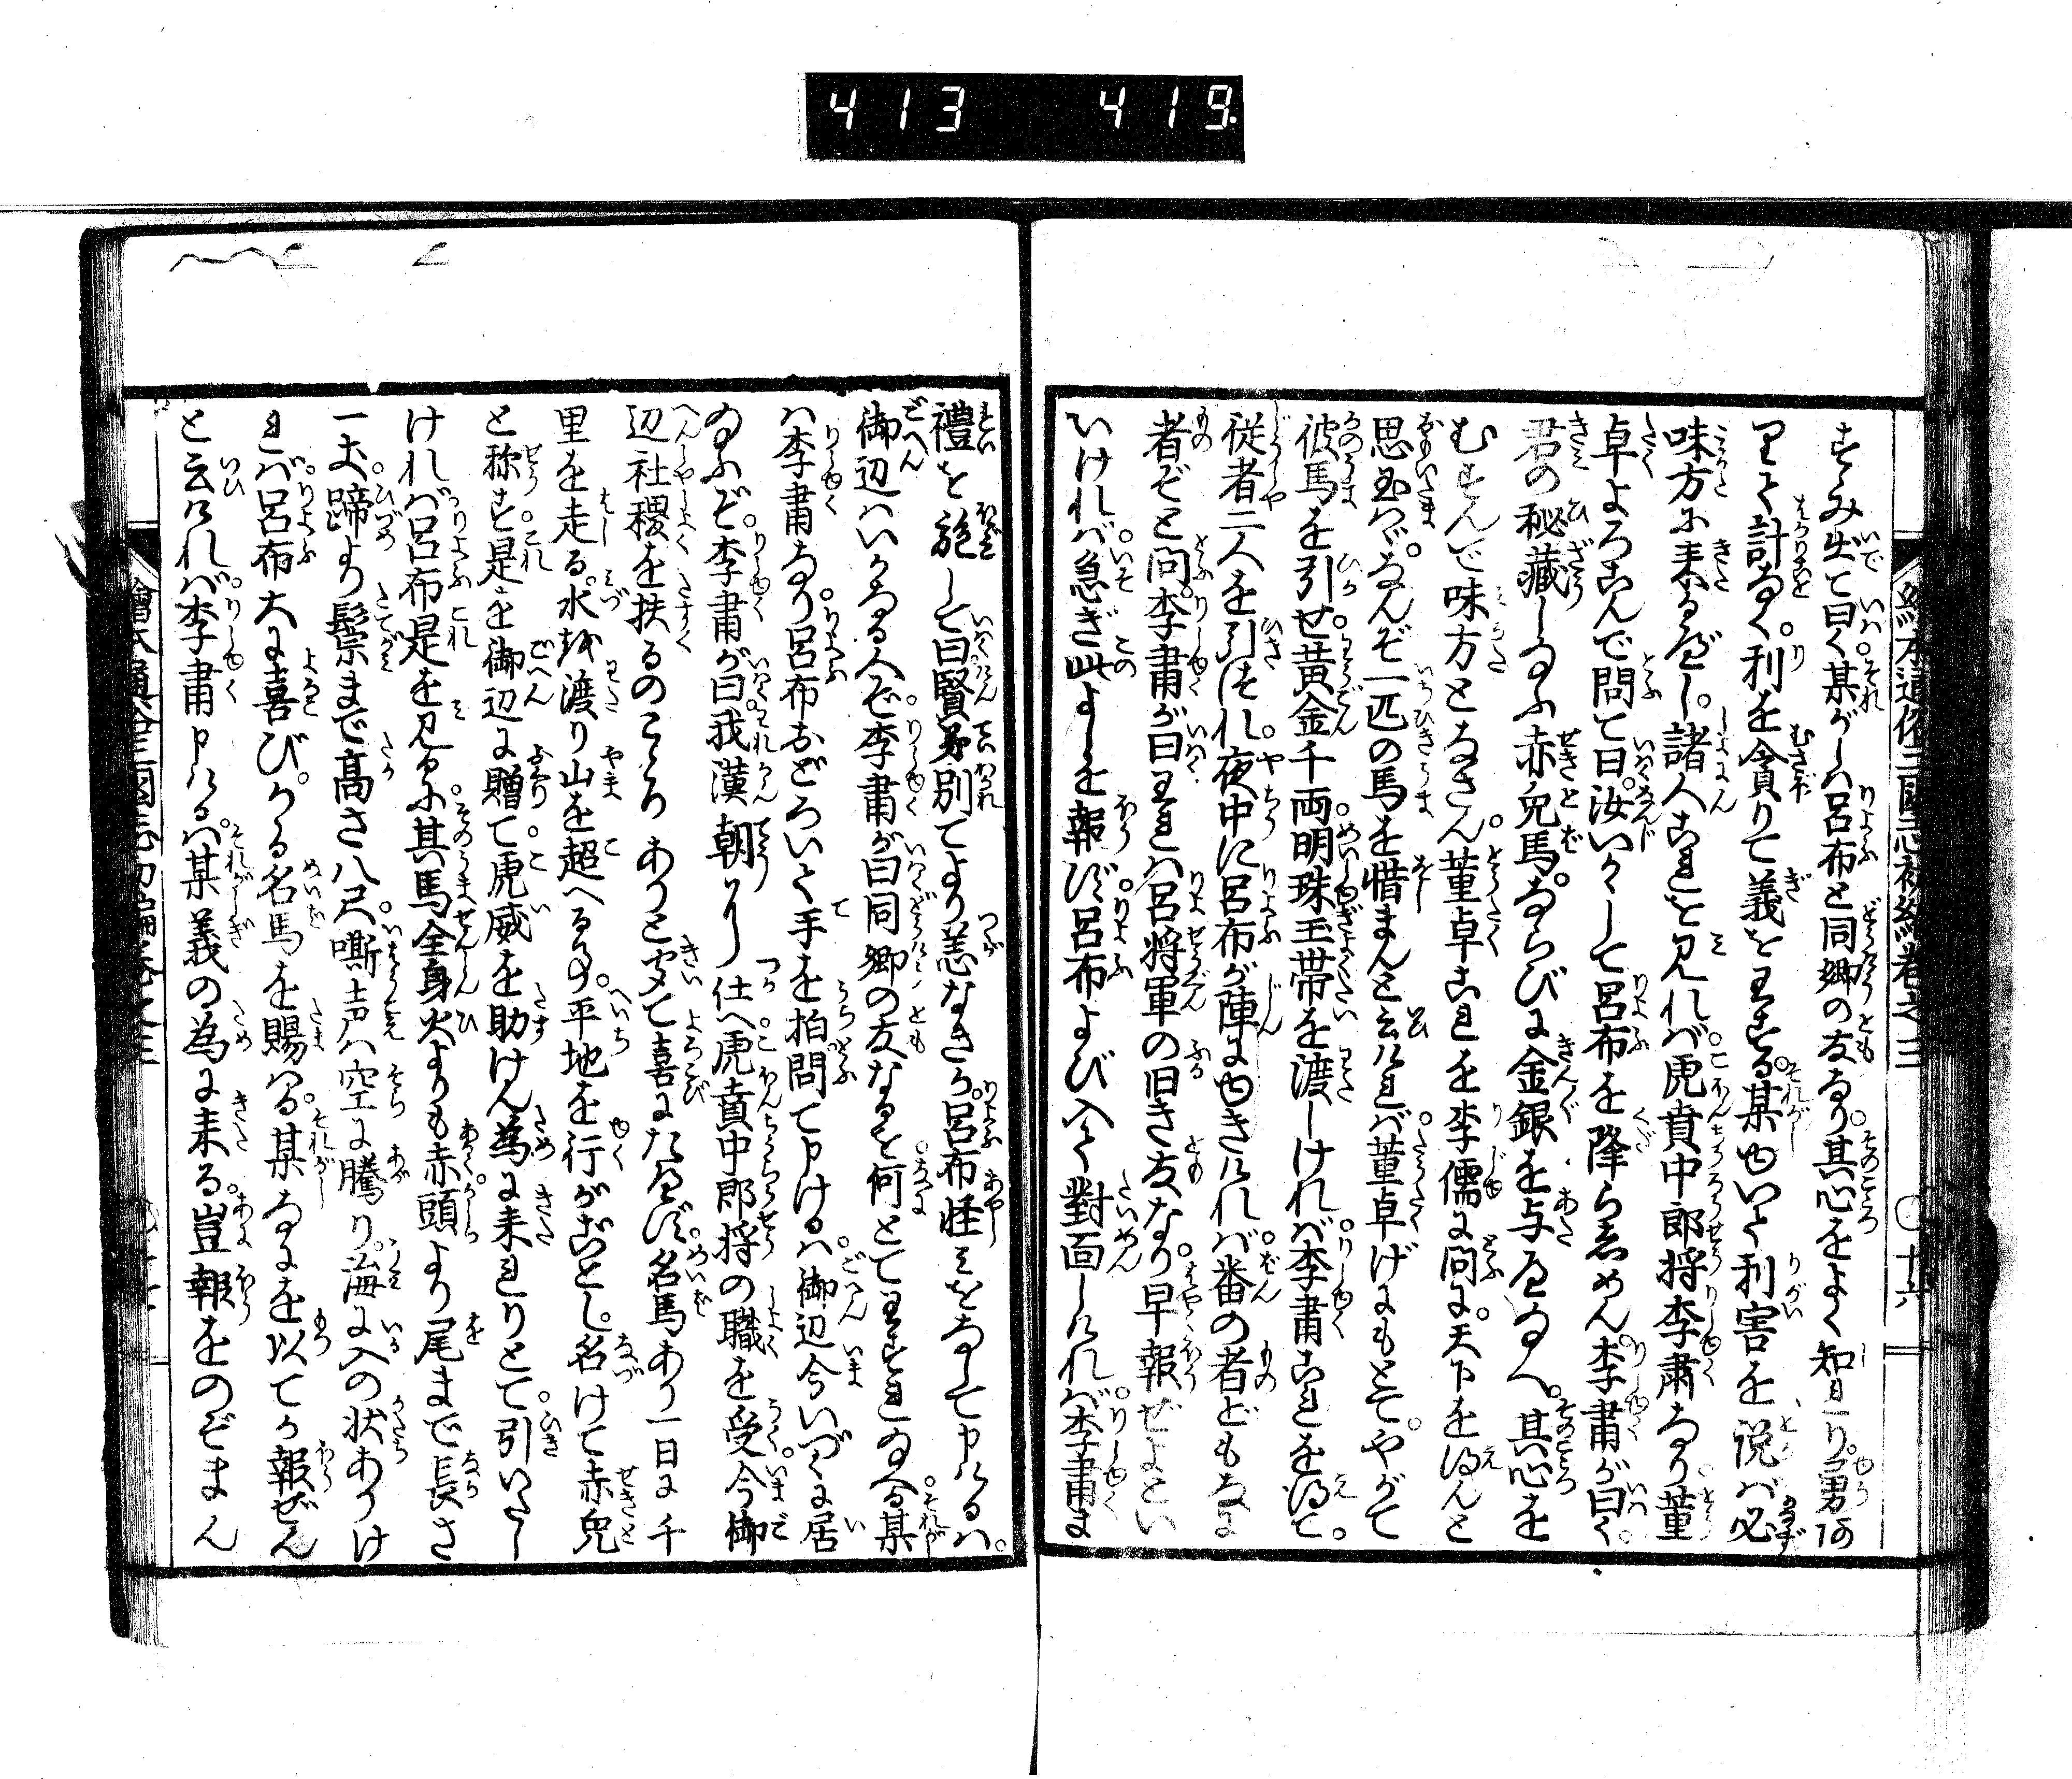 413 419
繪本通俗三國志初編巻之三 〇十六
すゝみ出て曰く某がしハ呂布と同郷の友なり其心をよく知れり勇のあ
りて計なく利を貪りて義をわする某ゆいて利害を説バ必
味方に来るべし諸人これを見れバ虎賁中郎将李粛なり董
卓よろこんで問て曰汝いかにして呂布を降らしめん李粛が曰く
君の秘藏し給ふ赤兎馬ならびに金銀を与へ給へ其心を
むすんで味方となさん董卓これを李儒に問に天下を得んと
思玉ハヾなんぞ一匹の馬を惜まんと云けれバ董卓げにもとてやがて
彼馬を引せ黄金千両明珠玉帯を渡しけれバ李粛これを得て
従者二人を引つれ夜中に呂布が陣にゆきけれバ番の者どもなに
者ぞと問李粛が曰われハ呂将軍の旧き友なり早報ぜよとい
いけれバ急ぎ此よしを報ず呂布よび入て對面しけれバ李粛ま
禮を施して曰賢弟別てより恙なきか呂布怪ミをなして申けるハ
御辺ハいかなる人ぞ李粛が曰同郷の友なるを何とてわすれ給ふ某
ハ李粛なり呂布おどろいて手を拍問て申けるハ御辺今いづくに居
給ふぞ李粛が曰我漢朝に仕へ虎賁中郎将の職を受今御
辺社稷を扶るのこゝろありと聞て喜にたへず名馬あり一日に千
里を走る水を渡り山を超へる事平地を行がごとし名けて赤兎
と称す是を御辺に贈て虎威を助けん為に来れりとて引いだし
けれバ呂布是を見るに其馬全身火よりも赤頭より尾まで長さ
一丈蹄より鬃まで高さ八尺嘶声ハ空に騰り海に入の状ありけ
れバ呂布大に喜びかゝる名馬を賜ハる某なにを以てか報ぜん
と云けれバ李粛申けるハ某義の為に来る豈報をのぞまん
繪本通俗三國志初編巻之三